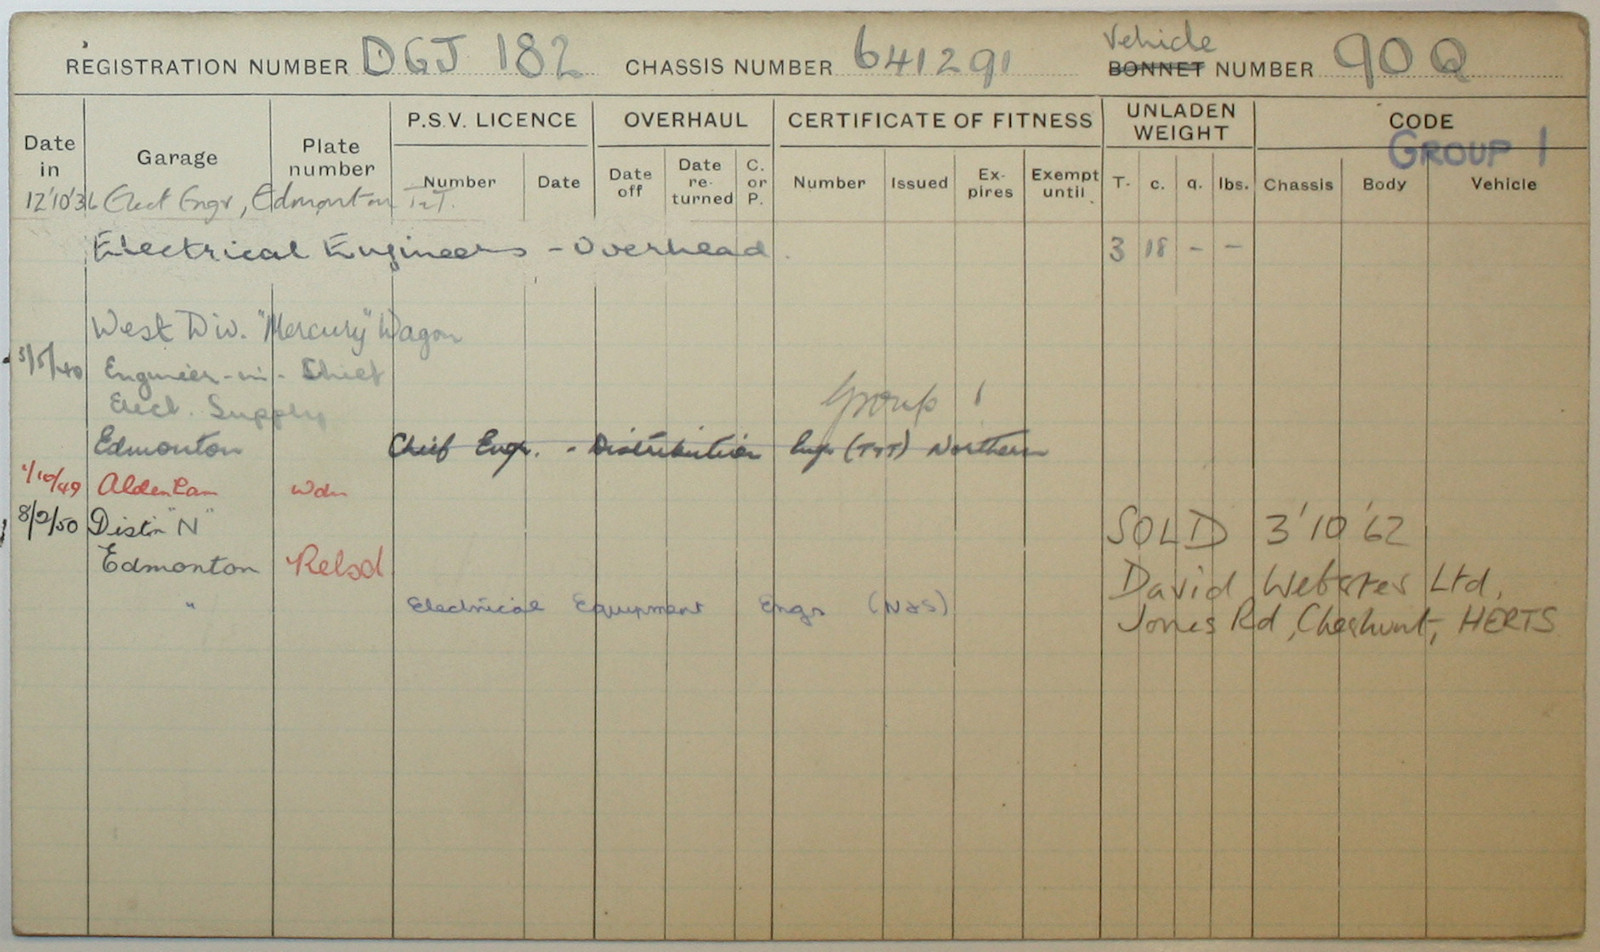 Vehicle
REGISTRATION NUMBER DGJ 182 CHASSIS NUMBER 641291 BONNET NUMBER 90 Q
Date in Garage Plate number P.S.V. LICENCE OVERHAUL CERTIFICATE OF FITNESS UNLADEN WEIGHT CODE
GROUP 1
Number Date Date off Date re-turned C. or P. Number Issued Ex-pires Exempt until T. c. q. lbs. Chassis Body Vehicle
12'10'36 Elect Engr, Edmonton T&T.
Electrical Engineers - Overhead. 3 18 - -
West Div. "Mercury" Wagon
3/5/40 Engineer-in-Chief
Elect. Supply Group 1
Edmonton Chief Engr. - Distribution Engr (T&T) Northern
1/10/49 Aldenham wdn
8/2/50 Distn "N" SOLD 3'10'62
Edmonton Relsd David Webster Ltd,
" Electrical Equipment Engr (N&S) Jones Rd, Cheshunt, HERTS